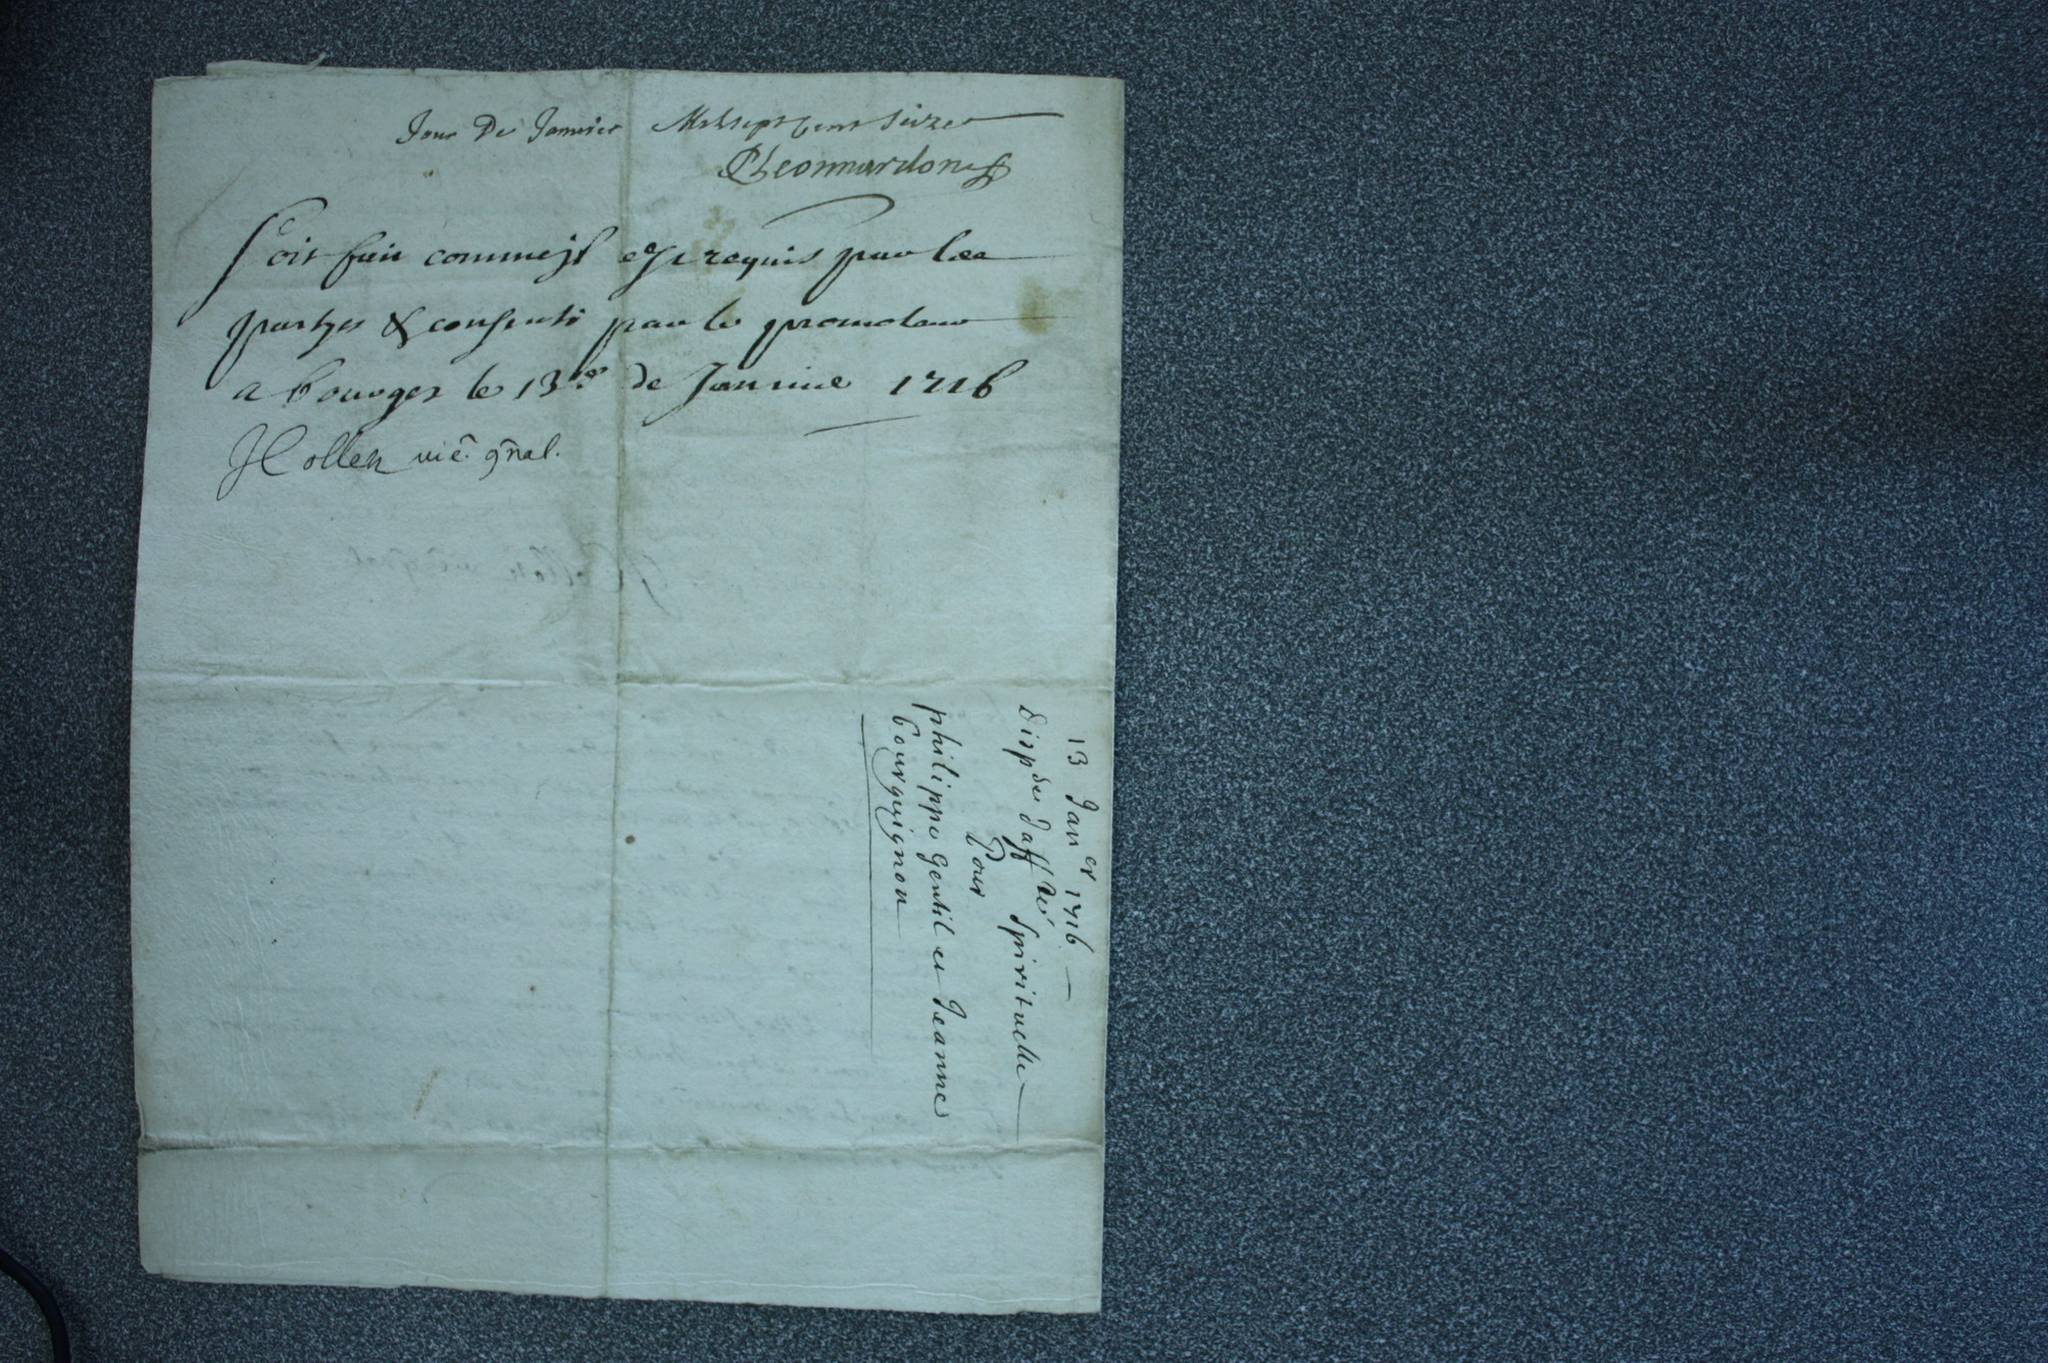 Jour De Janvier Mil sept Cent Seize
Leonnardon
Soit fait comme jl est requis par les
partyes & consenti par le promoteur
a bourges le 13e de Januier 1716
JCollen vic gnal.
13 Janer 1716.
Dispse daffté Spirituelle
Pour
philippe Gentil et Jeanne
bourguignon